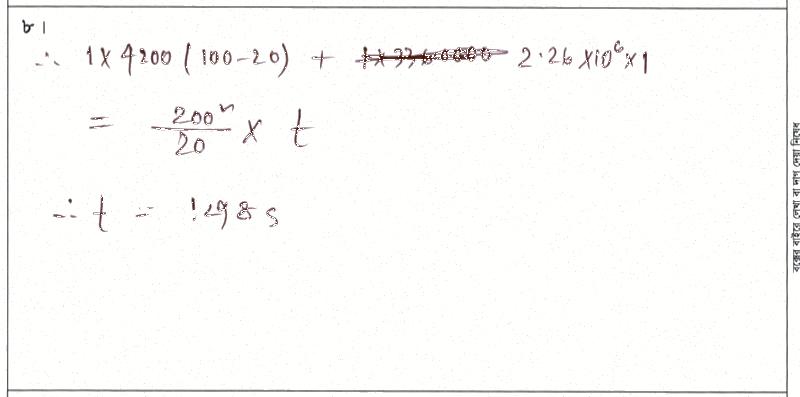 ৮।
∴ 1 × 4200 (100-20) + 2.26 × 10⁶ × 1
= 200²/20 × t
∴ t = 1298 s
বক্সের বাইরে লেখা বা দাগ দেয়া নিষেধ